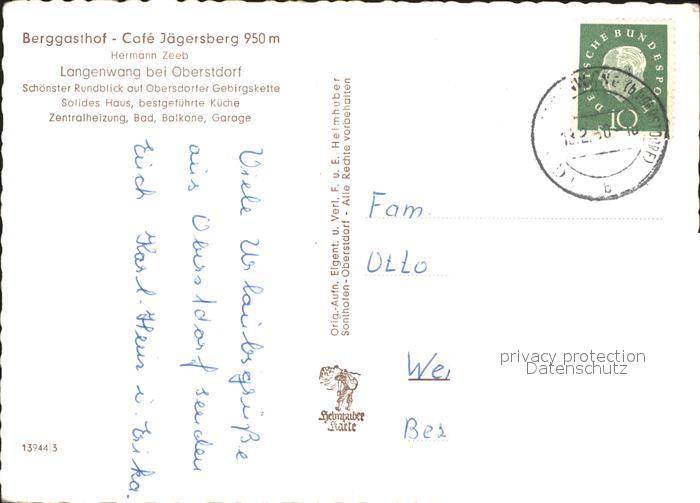 Berggasthof - Café Jägersberg 950 m
Hermann Zeeb
Langenwang bei Oberstdorf
Schönster Rundblick auf Obersdorfer Gebirgskette
Solides Haus, bestgeführte Küche
Zentralheizung, Bad, Balkone, Garage
Viele Urlaubsgrüße
aus Oberstdorf senden
Euch Karl-Heinz u. Erika.
Orig.-Aufn. Eigent. u. Verl. F. u. E. Heimhuber
Sonthofen-Oberstdorf - Alle Rechte vorbehalten
DEUTSCHE BUNDESPOST
10
b
Fam.
Otto
We
Bez
privacy protection
Datenschutz
Heimhuber
Karte
13944/3